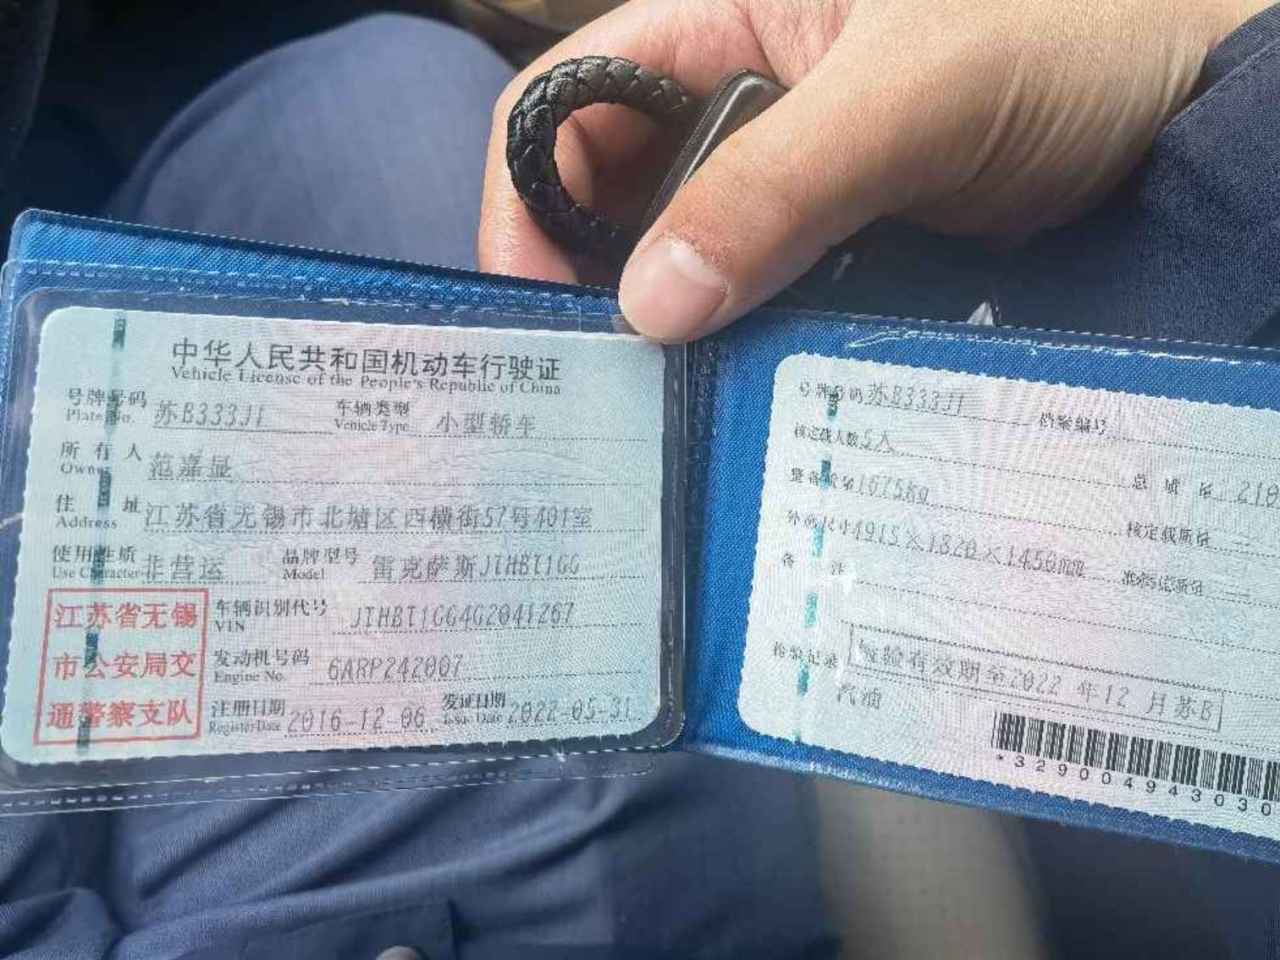 中华人民共和国机动车行驶证
Vehicle License of the People's Republic of China
号牌号码 苏B333J1 车辆类型 小型轿车
Plate No. Vehicle Type
所有人 范嘉显
Owner
住址 江苏省无锡市北塘区西横街57号401室
Address
使用性质 非营运 品牌型号 雷克萨斯JTHBT1GG
Use Character Model
江苏省无锡
市公安局交
通警察支队
车辆识别代号 JTHBT1GG4G2041267
VIN
发动机号码 6ARP242007
Engine No.
注册日期 2016-12-06 发证日期 2022-05-31
Register Date Issue Date
号牌号码 苏B333J1 档案编号
核定载人数 5人 总质量 218
整备质量 1675kg 核定载质量
外廓尺寸 4915×1820×1450mm 准牵引总质量
备注
检验记录 检验有效期至2022年12月苏B
汽油
*329004943030